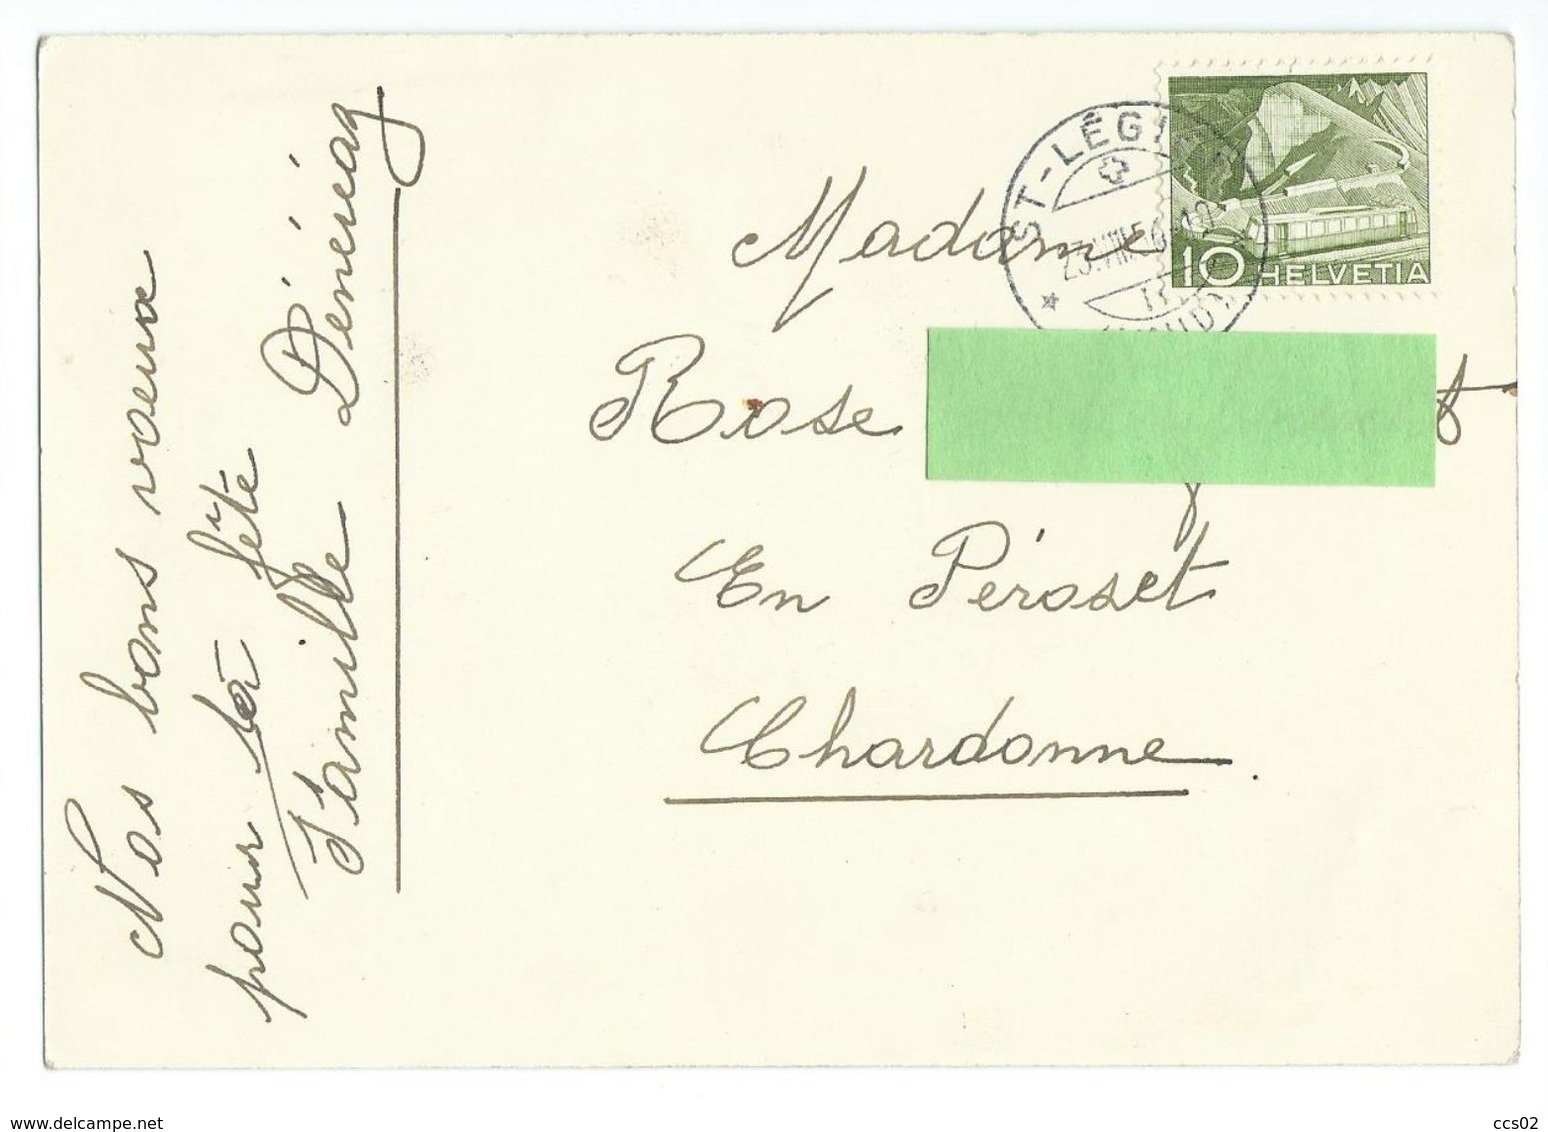 Nos bons voeux
pour ta fête
Famille Dénéréaz
ST-LÉGI
23.VIII.50-12
10 HELVETIA
Madame
Rose
En Péroset
Chardonne.
www.delcampe.net
ccs02